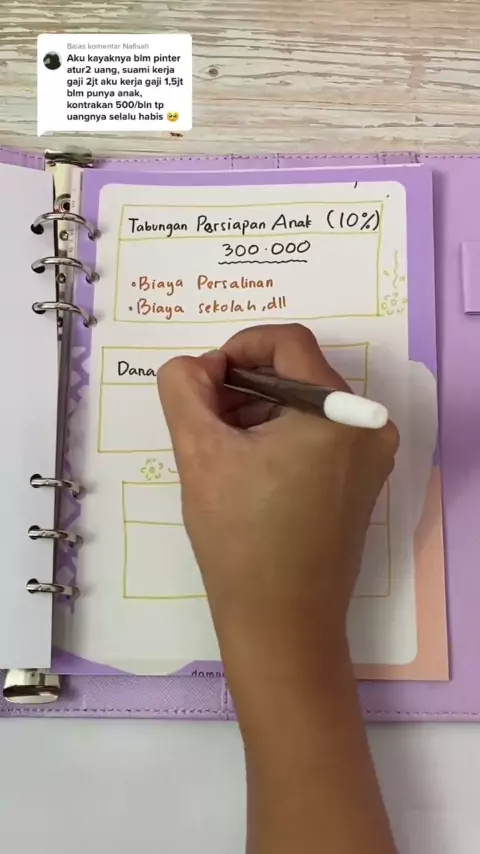 Balas komentar Nafisah
Aku kayaknya blm pinter
atur2 uang, suami kerja
gaji 2jt aku kerja gaji 1,5jt
blm punya anak,
kontrakan 500/bln tp
uangnya selalu habis 🥹
Tabungan Persiapan Anak (10%)
300.000
• Biaya Persalinan
• Biaya sekolah, dll
Dana